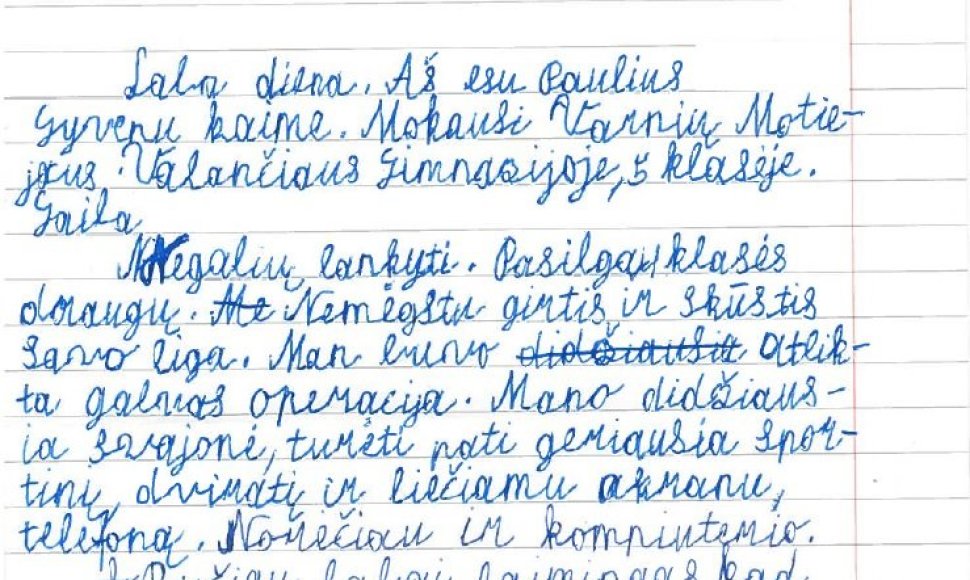 Laba diena. Aš esu Paulius
Gyvenu kaime. Mokausi Varnių Motie-
jaus Valančiaus Gimnazijoje, 5 klasėje.
Gaila
Negalių lankyti. Pasilgau klasės
draugų. Me Nemėgstu girtis ir skūstis
savo liga. Man buvo didžiausia Atlik-
ta galvos operacija. Mano didžiaus-
ia svajonė, turėti pati geriausia spor-
tinį dviratį ir liečiamu akranu,
telefoną. Norėčiau ir kompiuterio.
labai laimingas kad